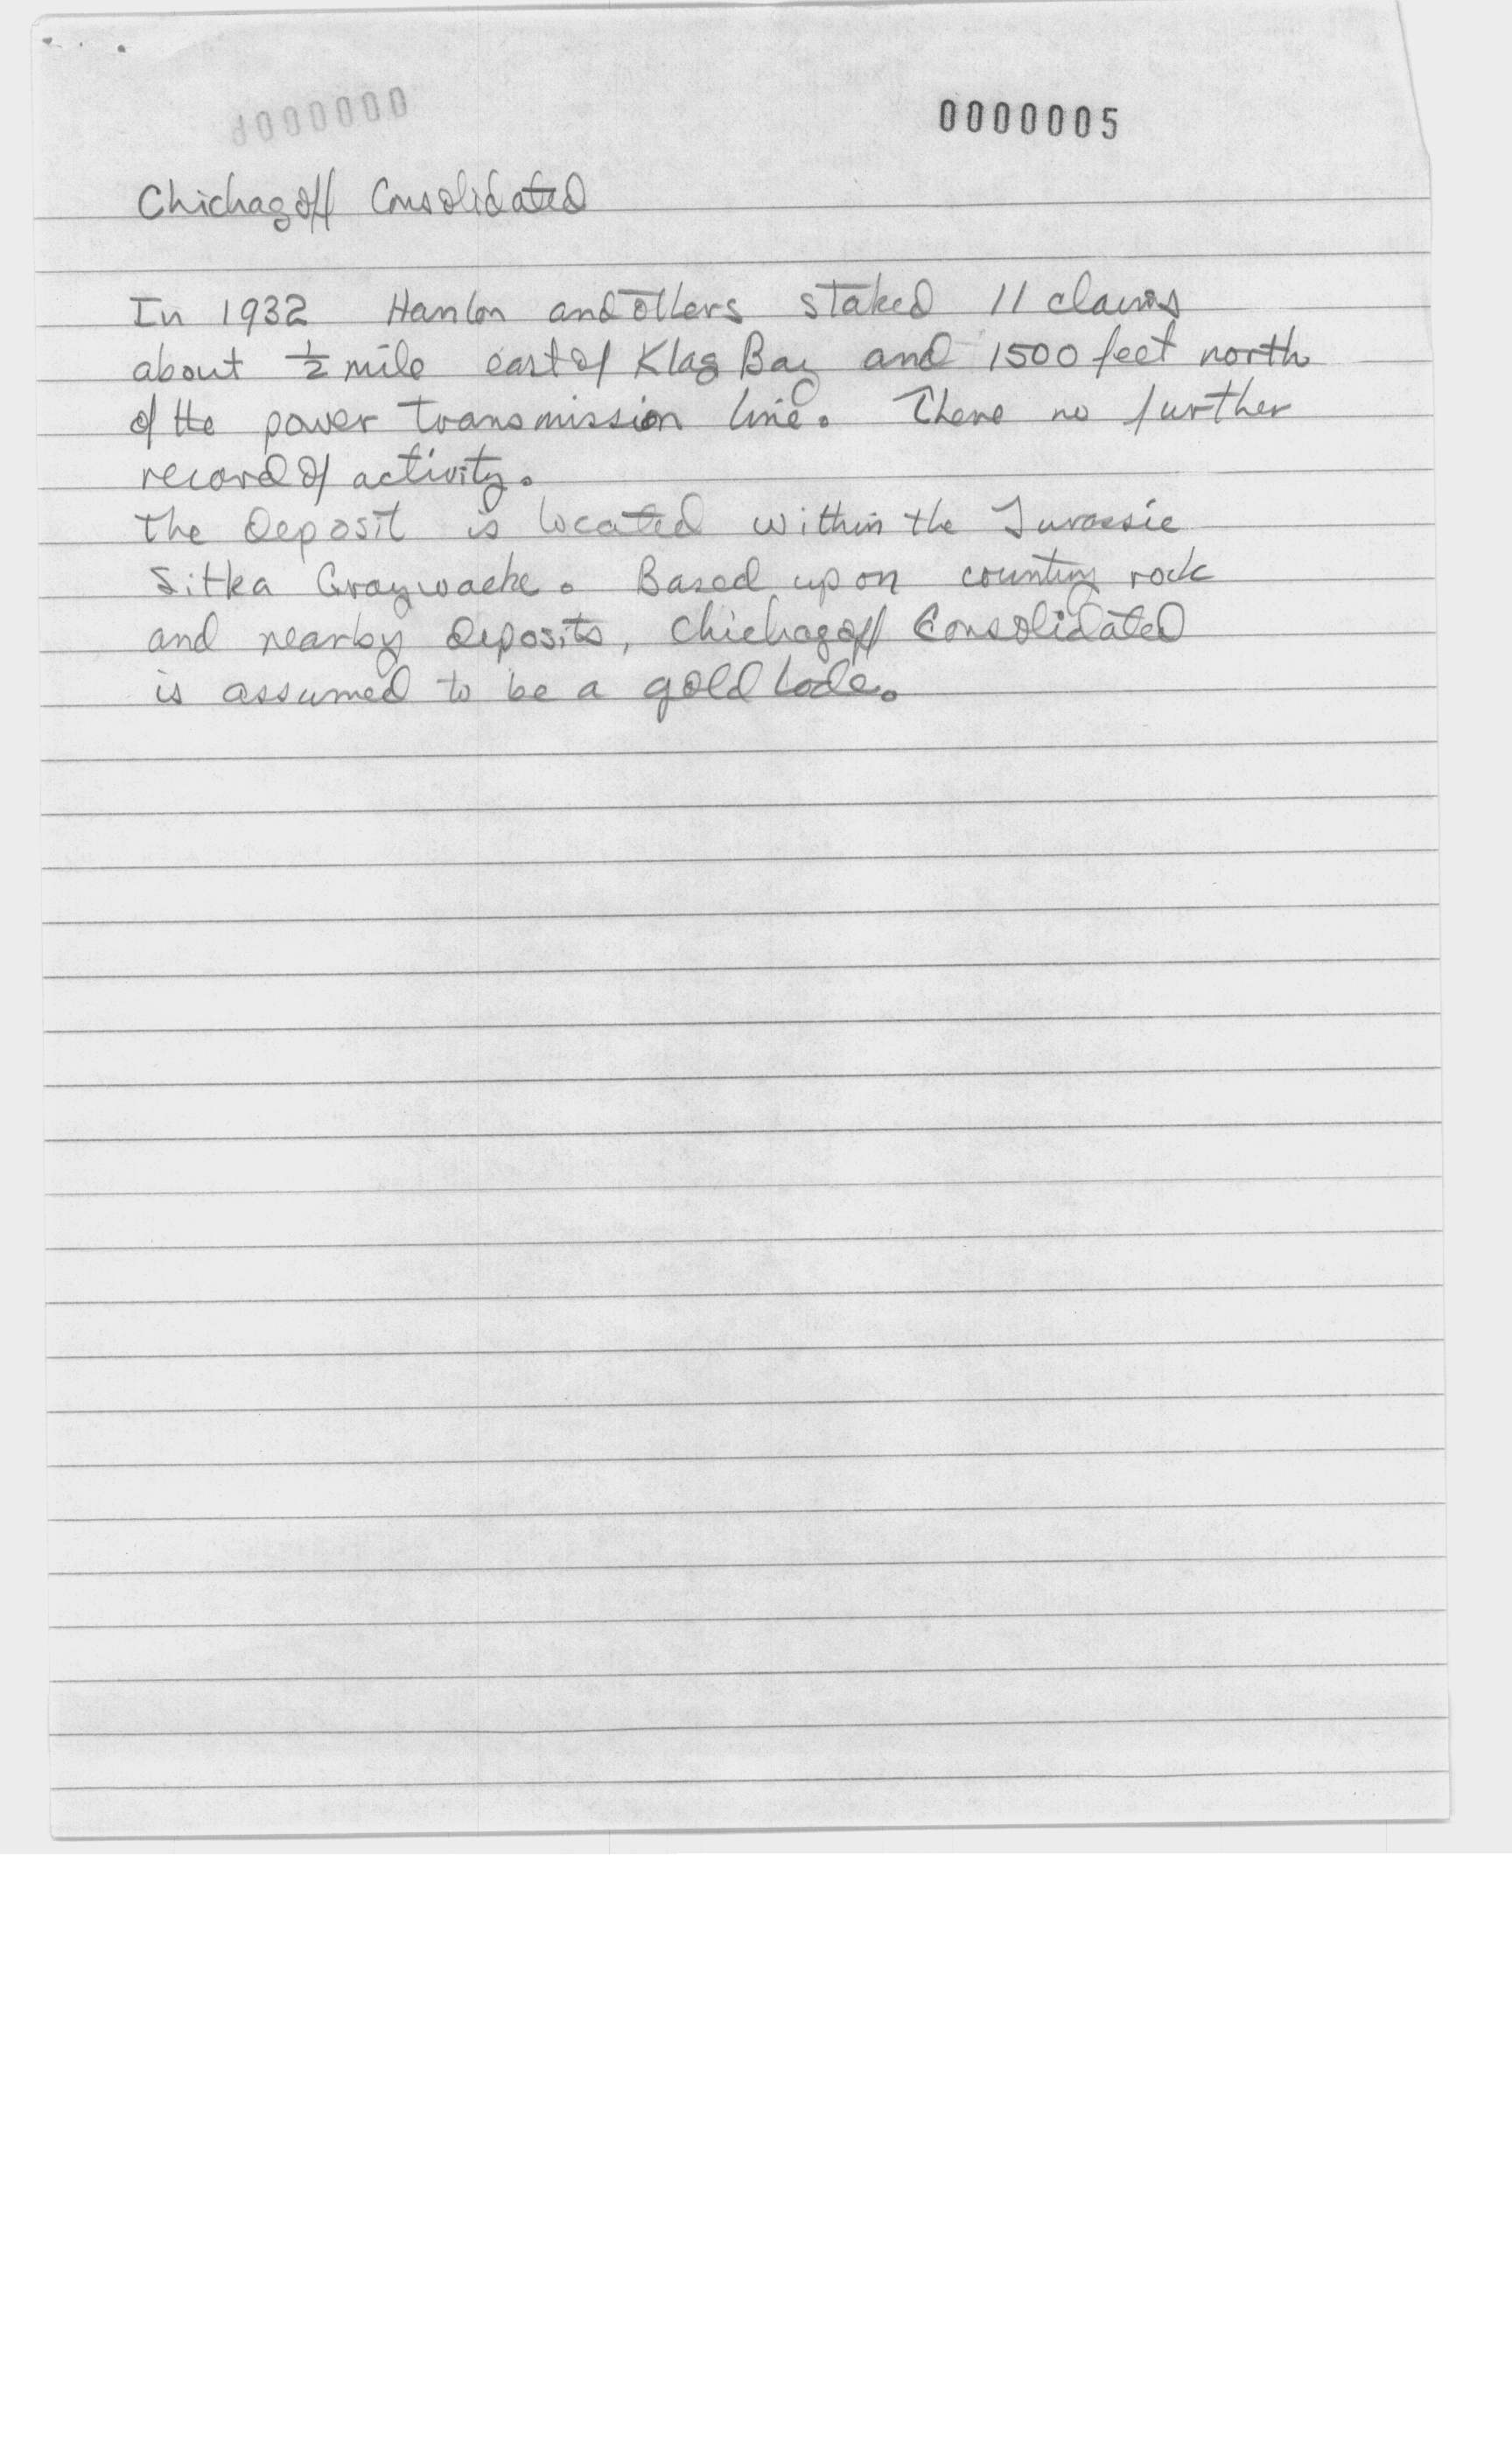 0000000
0000005
Chichagoff Consolidated
In 1932 Hanlon and others staked 11 claims
about 1/2 mile east of Klag Bay and 1500 feet north
of the power transmission line. There no further
record of activity.
The deposit is located within the Jurassic
Sitka Graywacke. Based upon country rock
and nearby deposits, Chichagoff Consolidated
is assumed to be a gold lode.